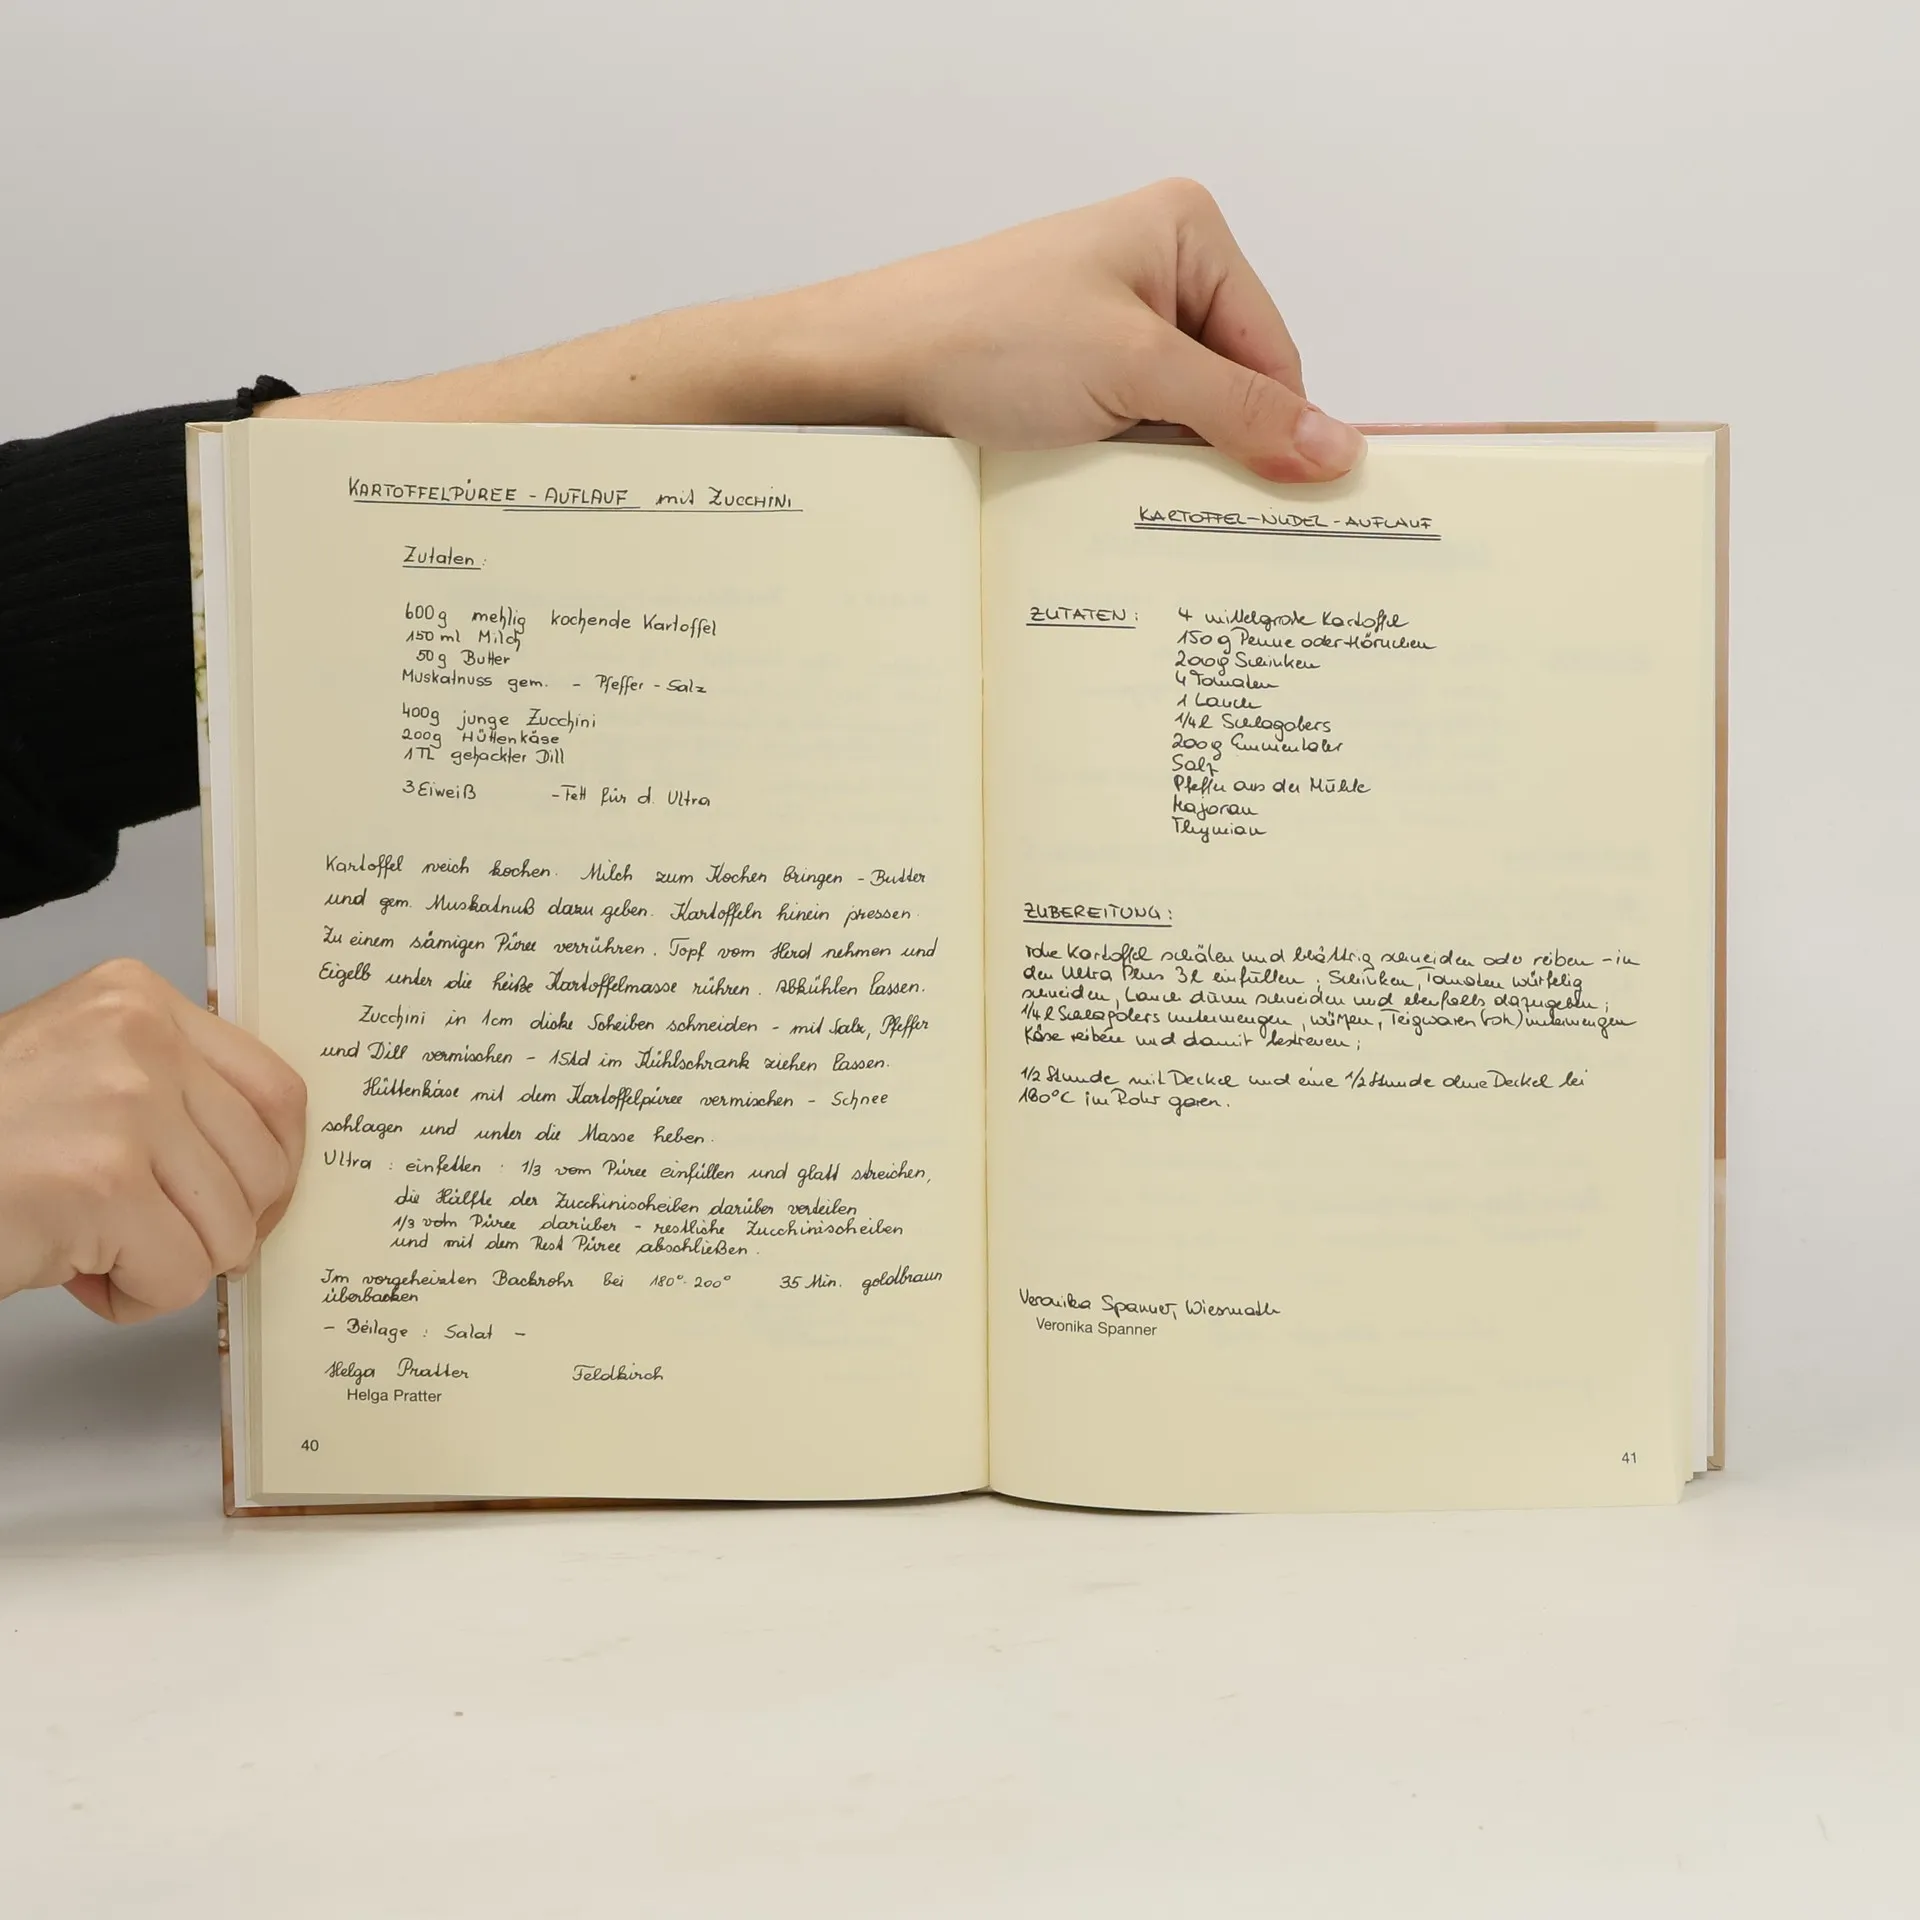 KARTOFFELPÜREE - AUFLAUF mit ZUCCHINI
Zutaten:
600g mehlig kochende Kartoffel
150 ml Milch
50g Butter
Muskatnuss gem. - Pfeffer - Salz
400g junge Zucchini
200g Hüttenkäse
1TL gehackter Dill
3 Eiweiß - Fett für d. Ultra
Kartoffel weich kochen. Milch zum Kochen bringen - Butter
und gem. Muskatnuß dazu geben. Kartoffeln hinein pressen.
Zu einem sämigen Püree verrühren. Topf vom Herd nehmen und
Eigelb unter die heiße Kartoffelmasse rühren. Abkühlen lassen.
Zucchini in 1cm dicke Scheiben schneiden - mit Salz, Pfeffer
und Dill vermischen - 1Std im Kühlschrank ziehen lassen.
Hüttenkäse mit dem Kartoffelpüree vermischen - Schnee
schlagen und unter die Masse heben.
Ultra : einfetten : 1/3 vom Püree einfüllen und glatt streichen,
die Hälfte der Zucchinischeiben darüber verteilen
1/3 vom Püree darüber - restliche Zucchinischeiben
und mit dem Rest Püree abschließen.
Im vorgeheizten Backrohr bei 180°- 200° 35 Min. goldbraun
überbacken
- Beilage : Salat -
Helga Pratter Feldkirch
Helga Pratter
40
KARTOFFEL-NUDEL-AUFLAUF
ZUTATEN: 4 mittelgroße Kartoffel
150 g Penne oder Hörnchen
200g Schinken
4 Tomaten
1 Lauch
1/4 l Schlagobers
200g Emmentaler
Salz
Pfeffer aus der Mühle
Majoran
Thymian
ZUBEREITUNG:
rohe Kartoffel schälen und blättrig schneiden oder reiben - in
den Ultra Plus 3l einfüllen; Schinken, Tomaten würfelig
schneiden, Lauch dünn schneiden und ebenfalls dazugeben;
1/4 l Schlagobers untermengen, würzen, Teigwaren (roh) untermengen
Käse reiben und damit bestreuen;
1/2 Stunde mit Deckel und eine 1/2 Stunde ohne Deckel bei
180°C im Rohr garen.
Veronika Spanner, Wiesmath
Veronika Spanner
41